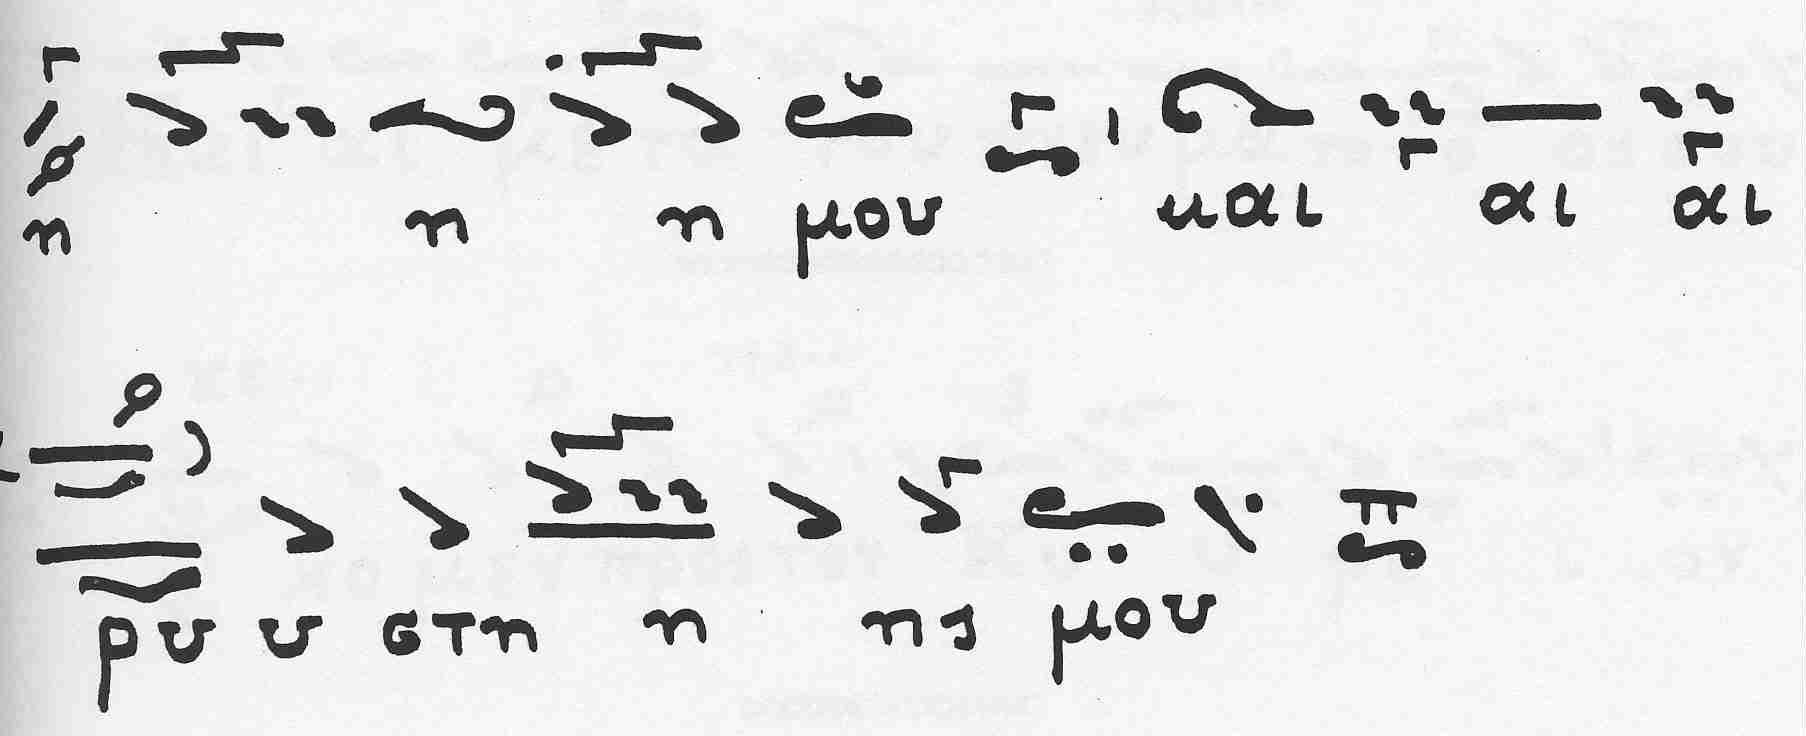 η η η μου μαι αι αι
ρυ υ στη η ης μου